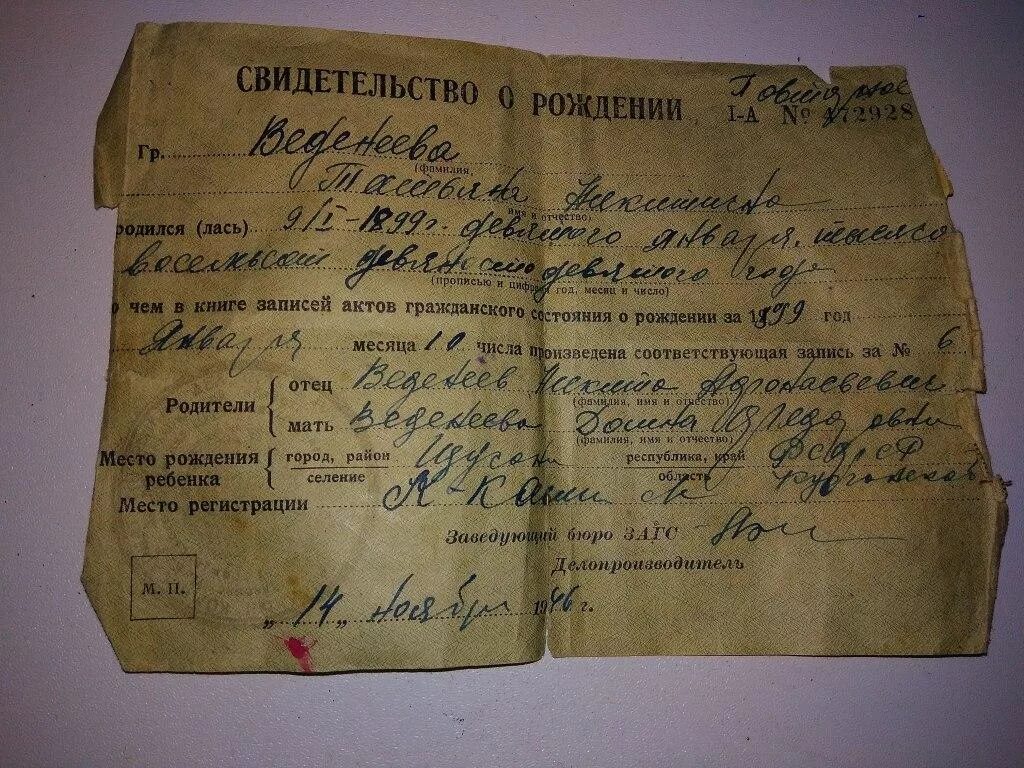 СВИДЕТЕЛЬСТВО О РОЖДЕНИИ
I-А № 472928
Гр. Веденеева
(фамилия,
Татьяна Никитична
имя и отчество)
родился (лась) 9/I-1899 г. девятого января, тысяча
восемьсот девяносто девятого года
(прописью и цифрами год, месяц и число)
о чем в книге записей актов гражданского состояния о рождении за 1899 год
Января месяца 10 числа произведена соответствующая запись за № 6
Родители
отец Веденеев Никита
(фамилия, имя и отчество)
мать Веденеева Домна
(фамилия, имя и отчество)
Место рождения ребенка
город, район селение
республика, край область РСФСР
Место регистрации
Заведующий бюро ЗАГС
Делопроизводитель
М. П.
„14„ ноября 1946 г.